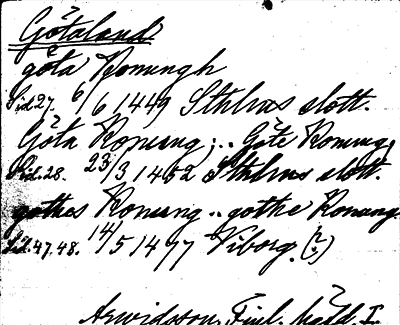 Götaland
göta Konungh
Sid. 27. 6/6 1449 Sthlms slott.
Göta Konung; .. Göte Konung,
Sid. 28. 23/3 1452 Sthlms slott.
gothes Konung .. gothe Konung
Sid. 47. 48. 14/5 1477 Viborg. (?)
Arwidsson, Finl. häfd. I.